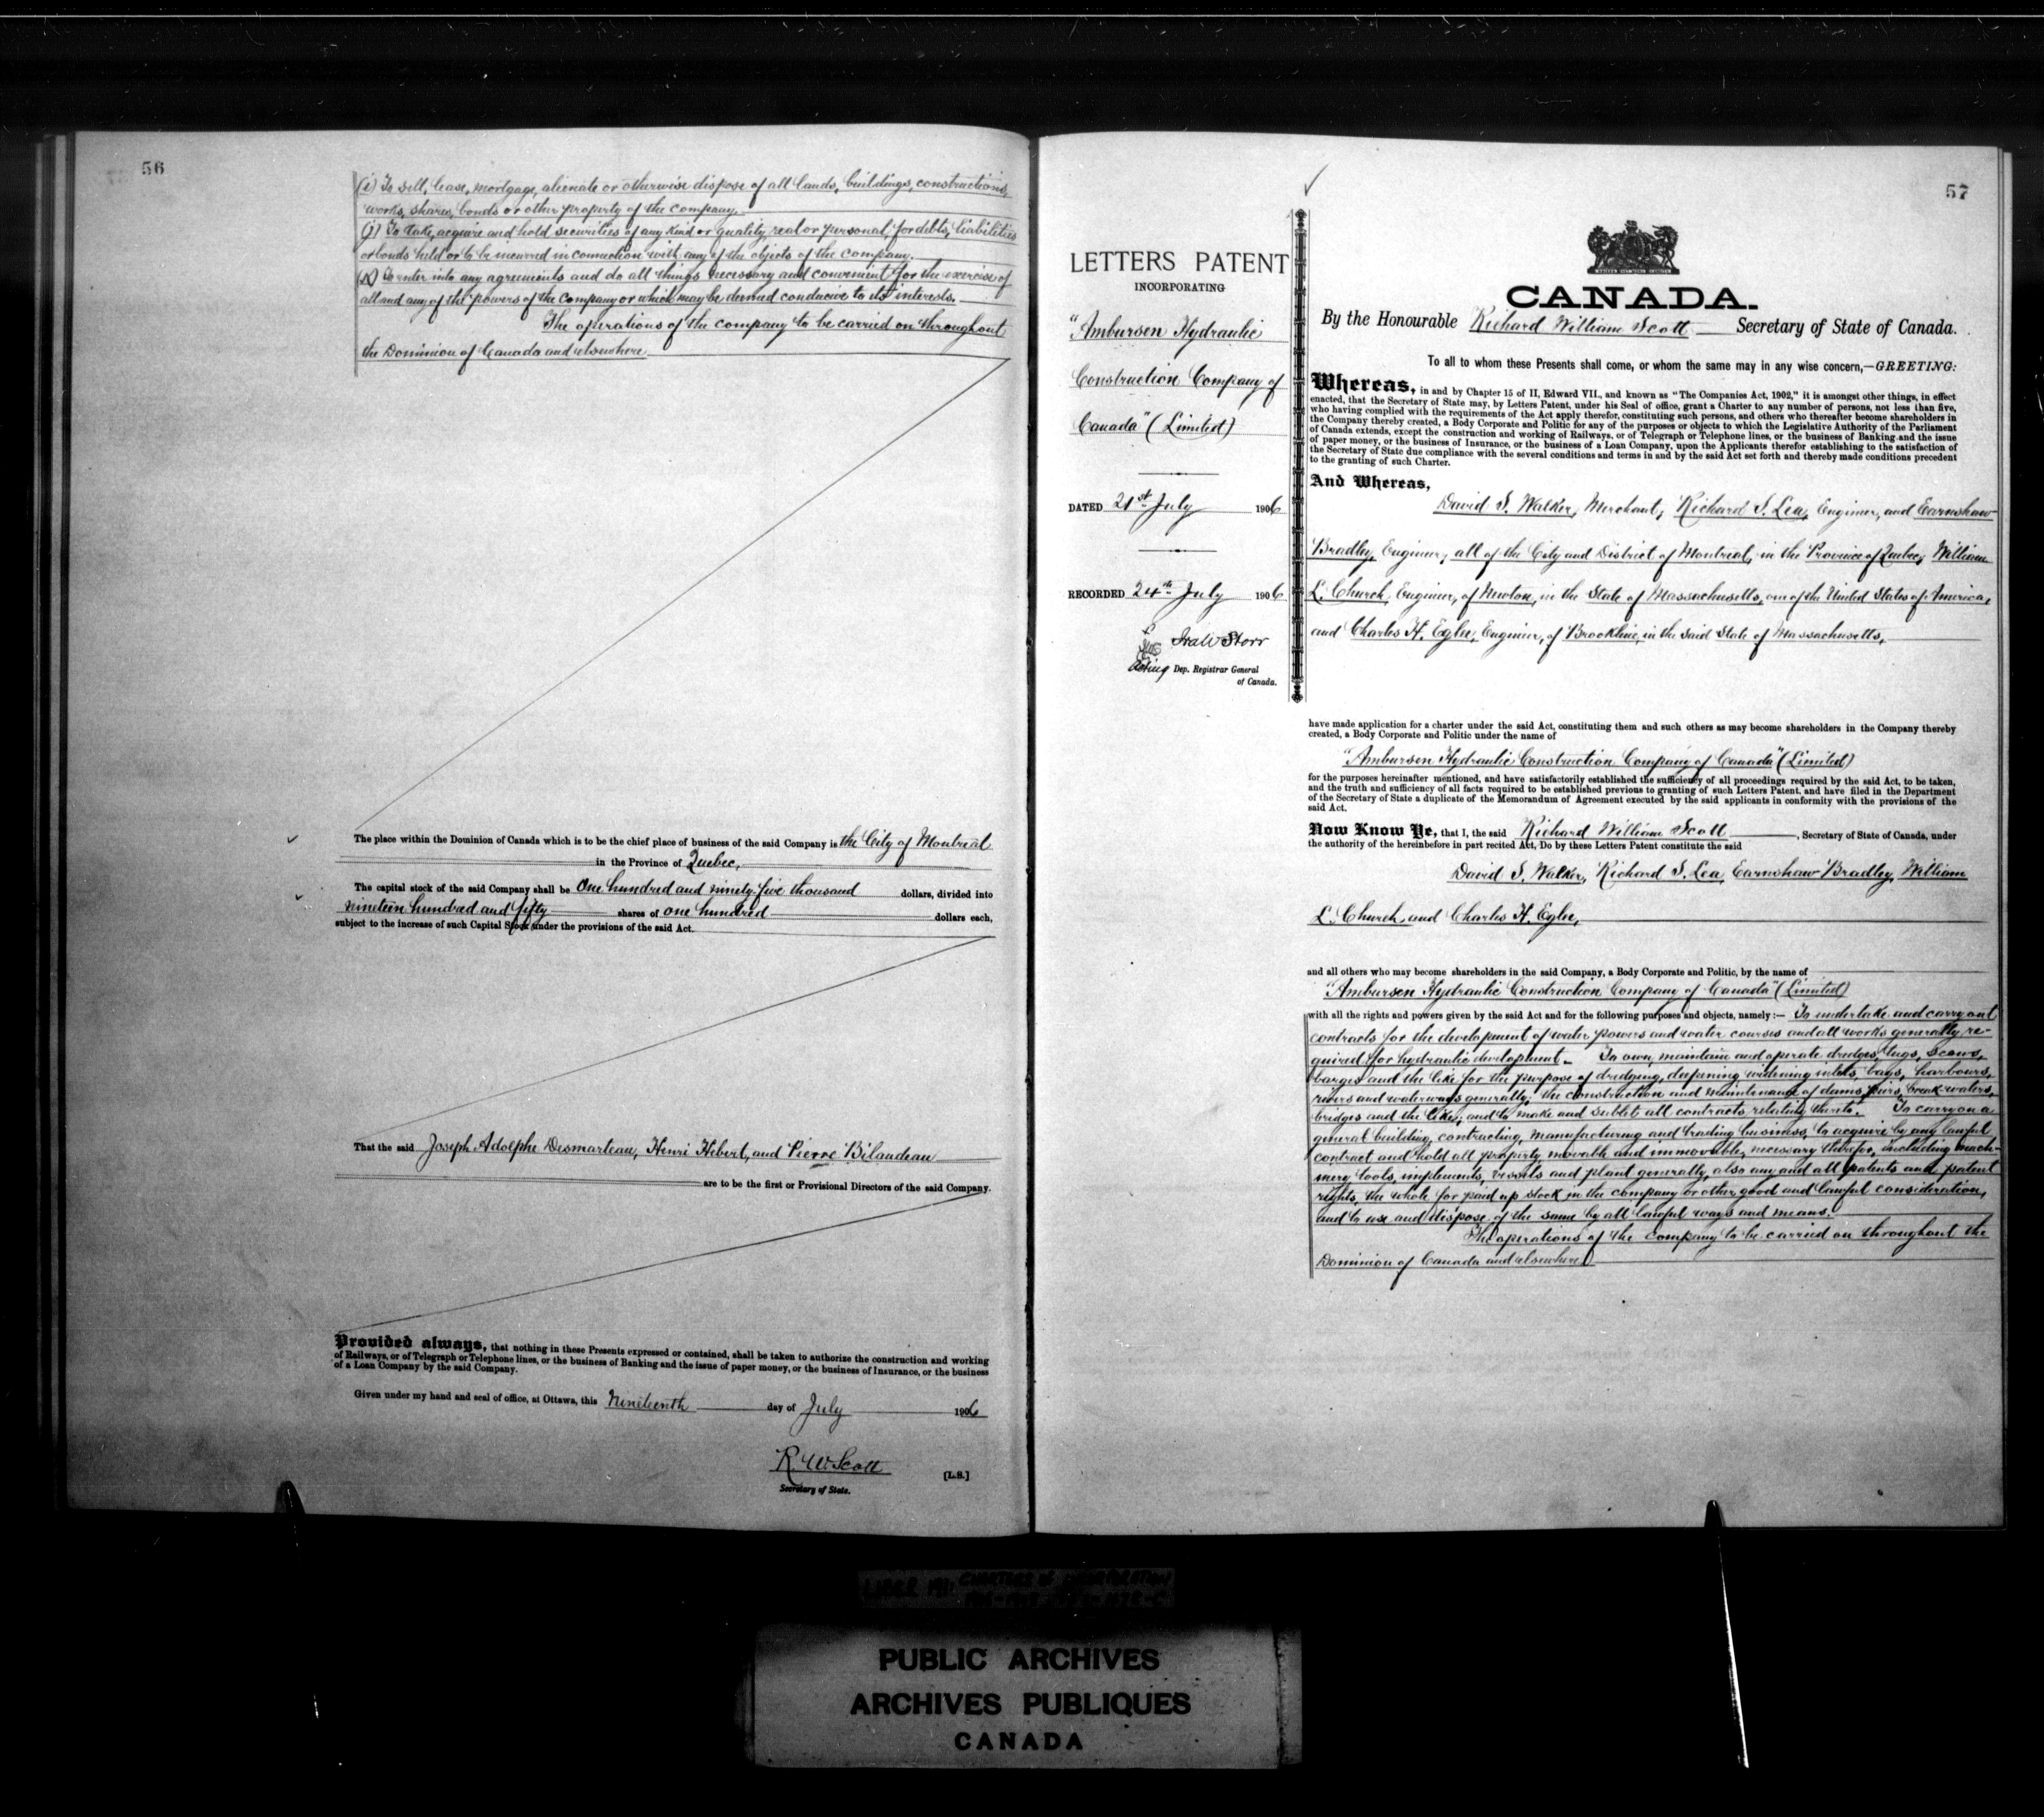 56
(i) To sell, lease, mortgage, alienate or otherwise dispose of all lands, buildings, constructions,
works, shares, bonds or other property of the company.
(j) To take, acquire and hold securities of any kind or quality, real or personal, for debts, liabilities
or bonds held or to be incurred in connection with any of the objects of the company.
(k) To enter into any agreements and do all things necessary and convenient for the exercise of
all and any of the powers of the Company or which may be deemed conducive to its interests.
The operations of the company to be carried on throughout
the Dominion of Canada and elsewhere
The place within the Dominion of Canada which is to be the chief place of business of the said Company is the City of Montreal
in the Province of Quebec,
The capital stock of the said Company shall be One hundred and ninety-five thousand dollars, divided into
nineteen hundred and fifty shares of one hundred dollars each,
subject to the increase of such Capital Stock under the provisions of the said Act.
That the said Joseph Adolphe Desmarteau, Henri Hébert, and Pierre Bilaudeau
are to be the first or Provisional Directors of the said Company.
Provided always, that nothing in these Presents expressed or contained, shall be taken to authorize the construction and working
of Railways, or of Telegraph or Telephone lines, or the business of Banking and the issue of paper money, or the business of Insurance, or the business
of a Loan Company by the said Company.
Given under my hand and seal of office, at Ottawa, this Nineteenth day of July 1906
R. W. Scott
[L.S.]
Secretary of State.
57
LETTERS PATENT
INCORPORATING
"Ambursen Hydraulic
Construction Company of
Canada" (Limited)
DATED 21st July 1906
RECORDED 24th July 1906
Ira W Storr
Acting Dep. Registrar General
of Canada.
CANADA.
By the Honourable Richard William Scott Secretary of State of Canada.
To all to whom these Presents shall come, or whom the same may in any wise concern,—GREETING:
Whereas, in and by Chapter 15 of II, Edward VII., and known as "The Companies Act, 1902," it is amongst other things, in effect
enacted, that the Secretary of State may, by Letters Patent, under his Seal of office, grant a Charter to any number of persons, not less than five,
who having complied with the requirements of the Act apply therefor, constituting such persons, and others who thereafter become shareholders in
the Company thereby created, a Body Corporate and Politic for any of the purposes or objects to which the Legislative Authority of the Parliament
of Canada extends, except the construction and working of Railways, or of Telegraph or Telephone lines, or the business of Banking and the issue
of paper money, or the business of Insurance, or the business of a Loan Company, upon the Applicants therefor establishing to the satisfaction of
the Secretary of State due compliance with the several conditions and terms in and by the said Act set forth and thereby made conditions precedent
to the granting of such Charter.
And Whereas,
David S. Walker, Merchant, Richard S. Lea, Engineer, and Earnshaw
Bradley, Engineer, all of the City and District of Montreal, in the Province of Quebec, William
L. Church, Engineer, of Newton, in the State of Massachusetts, one of the United States of America,
and Charles H. Eglee, Engineer, of Brookline, in the said State of Massachusetts,
have made application for a charter under the said Act, constituting them and such others as may become shareholders in the Company thereby
created, a Body Corporate and Politic under the name of
"Ambursen Hydraulic Construction Company of Canada" (Limited)
for the purposes hereinafter mentioned, and have satisfactorily established the sufficiency of all proceedings required by the said Act, to be taken,
and the truth and sufficiency of all facts required to be established previous to granting of such Letters Patent, and have filed in the Department
of the Secretary of State a duplicate of the Memorandum of Agreement executed by the said applicants in conformity with the provisions of the
said Act.
Now Know Ye, that I, the said Richard William Scott, Secretary of State of Canada, under
the authority of the hereinbefore in part recited Act, Do by these Letters Patent constitute the said
David S. Walker, Richard S. Lea, Earnshaw Bradley, William
L. Church, and Charles H. Eglee,
and all others who may become shareholders in the said Company, a Body Corporate and Politic, by the name of
"Ambursen Hydraulic Construction Company of Canada" (Limited)
with all the rights and powers given by the said Act and for the following purposes and objects, namely:— To undertake and carry out
contracts for the development of water powers and water courses and all works generally re-
quired for hydraulic development. To own, maintain and operate dredges, tugs, scows,
barges and the like for the purpose of dredging, deepening widening inlets, bays, harbours,
rivers and waterways generally; the construction and maintenance of dams, piers, break-waters,
bridges and the like; and to make and sublet all contracts relating thereto. To carry on a
general building, contracting, manufacturing and trading business, to acquire by any lawful
contract and hold all property, movable and immovable, necessary therefor, including mach-
inery tools, implements, vessels and plant generally, also any and all patents and patent
rights, the whole for paid up stock in the company or other good and lawful consideration,
and to use and dispose of the same by all lawful ways and means.
The operations of the company to be carried on throughout the
Dominion of Canada and elsewhere
PUBLIC ARCHIVES
ARCHIVES PUBLIQUES
CANADA